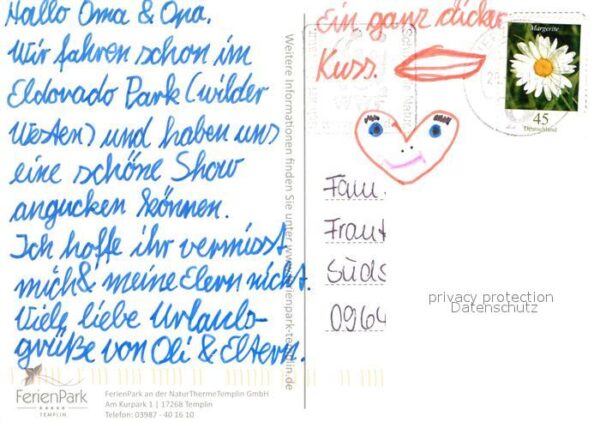 Hallo Oma & Opa.
Wir fahren schon im
Eldorado Park (wilder
Westen) und haben uns
eine schöne Show
angucken können.
Ich hoffe ihr vermisst
mich & meine Elern nicht.
Viele liebe Urlaubs-
grüße von Oli & Eltern.
FerienPark
TEMPLIN
FerienPark an der NaturThermeTemplin GmbH
Am Kurpark 1 | 17268 Templin
Telefon: 03987 - 40 16 10
Weitere Informationen finden Sie unter www.ferienpark-templin.de
Ein ganz dicker
Kuss.
Margerite
45
Deutschland
Fam.
Frant
Süds
0964
privacy protection
Datenschutz